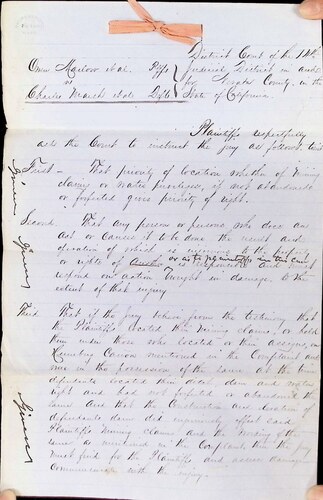 District Court of the 14th
Owen Marlow et al. Plffs Judicial District in and
vs for County, in the
Charles Marsh et als Defts State of California
Plaintiffs respectfully
asks the Court to instruct the jury as follows
First – That priority of location whether of mining
claims or water privileges, if not abandoned
or forfeited gives priority of right.
Second That any person or persons who does an
act or causes it to be done the result and
operation of which is injurious to the property
or rights of another or as to plaintiffs in this suit
is responsible and must
respond in action brought in damage, to the
extent of that injury
Third That if the jury believe from the testimony that
the Plaintiffs located their mining claims, or hold
them under those who located or their assigns, in
Canon mentioned in the Complaint and
were in the possession of the same at the time
defendants located their ditch dam and water
right and had not forfeited or abandoned the
same and that the construction and erection of
defendants dam did injuriously effect said
Plaintiffs mining claims and the working of the
same as mentioned in the Complaint that the jury
must find for the Plaintiffs and assess damages
Commensurate with the injury.
Given
Given
Given